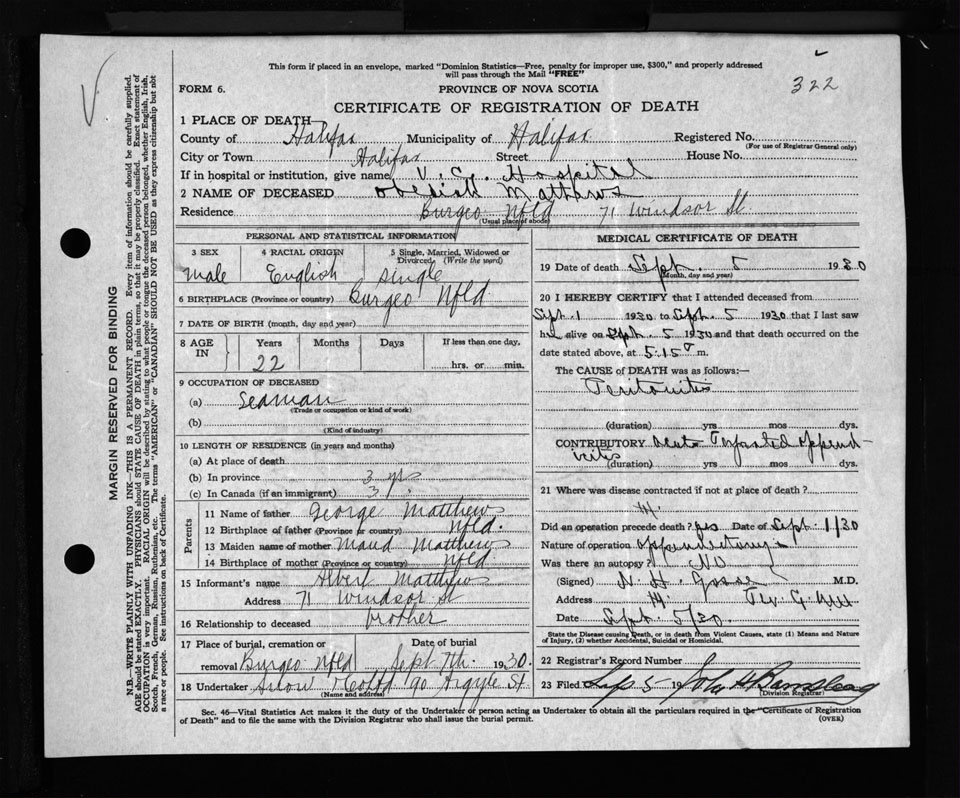 This form if placed in an envelope, marked "Dominion Statistics—Free, penalty for improper use, $300," and properly addressed
will pass through the Mail "FREE"
322
FORM 6.
PROVINCE OF NOVA SCOTIA
CERTIFICATE OF REGISTRATION OF DEATH
1 PLACE OF DEATH
County of Halifax Municipality of Halifax Registered No.
(For use of Registrar General only)
City or Town Halifax Street House No.
If in hospital or institution, give name V. G. Hospital
2 NAME OF DECEASED Matthews
Residence Burgeo Nfld 71 Windsor St
(Usual place of abode)
PERSONAL AND STATISTICAL INFORMATION
3 SEX 4 RACIAL ORIGIN 5 Single, Married, Widowed or Divorced (Write the word)
male English single
6 BIRTHPLACE (Province or country) Burgeo Nfld
7 DATE OF BIRTH (month, day and year)
8 AGE IN Years Months Days If less than one day,
22 hrs. or min.
9 OCCUPATION OF DECEASED
(a) Seaman
(Trade or occupation or kind of work)
(b)
(Kind of industry)
10 LENGTH OF RESIDENCE (in years and months)
(a) At place of death
(b) In province 3 yrs
(c) In Canada (if an immigrant) 3
Parents
11 Name of father George Matthews
12 Birthplace of father (Province or country) Nfld.
13 Maiden name of mother Maud Matthews
14 Birthplace of mother (Province or country) Nfld
15 Informant's name Albert Matthews
Address 71 Windsor St
16 Relationship to deceased brother
17 Place of burial, cremation or removal Burgeo Nfld Date of burial Sept 7th 1930.
18 Undertaker Snow 90 Argyle St
(Name and address)
MEDICAL CERTIFICATE OF DEATH
19 Date of death Sept. 5 1930
(Month, day and year)
20 I HEREBY CERTIFY that I attended deceased from
Sept. 1 1930 to Sept. 5 1930 that I last saw
h alive on Sept. 5 1930 and that death occurred on
date stated above, at 5.15 m.
The CAUSE of DEATH was as follows:—
Peritonitis
(duration) yrs mos dys.
CONTRIBUTORY Acute Perforated Append-
icitis
(duration) yrs mos dys.
21 Where was disease contracted if not at place of death?
Did an operation precede death? yes Date of Sept. 1/30
Nature of operation appendectomy
Was there an autopsy? No
(Signed) N. H. Gosse M.D.
Address
Date Sept. 5/30.
State the Disease causing Death, or in death from Violent Causes, state (1) Means and Nature
of Injury, (2) whether Accidental, Suicidal or Homicidal.
22 Registrar's Record Number
23 Filed Sep 5 19 John H
(Division Registrar)
Sec. 46—Vital Statistics Act makes it the duty of the Undertaker or person acting as Undertaker to obtain all the particulars required in the "Certificate of Registration
of Death" and to file the same with the Division Registrar who shall issue the burial permit.
(OVER)
MARGIN RESERVED FOR BINDING
N.B.—WRITE PLAINLY WITH UNFADING INK—THIS IS A PERMANENT RECORD. Every item of information should be carefully supplied.
AGE should be stated EXACTLY. PHYSICIANS should STATE CAUSE OF DEATH in plain terms, so that it may be properly classified. Exact statement of
OCCUPATION is very important. RACIAL ORIGIN will be described by stating to what people or tongue the deceased person belonged, whether English, Irish,
Scotch, French, German, Russian, Ruthenian, etc. The terms "AMERICAN" or "CANADIAN" SHOULD NOT BE USED as they express citizenship but not
a race or people. See instructions on back of Certificate.